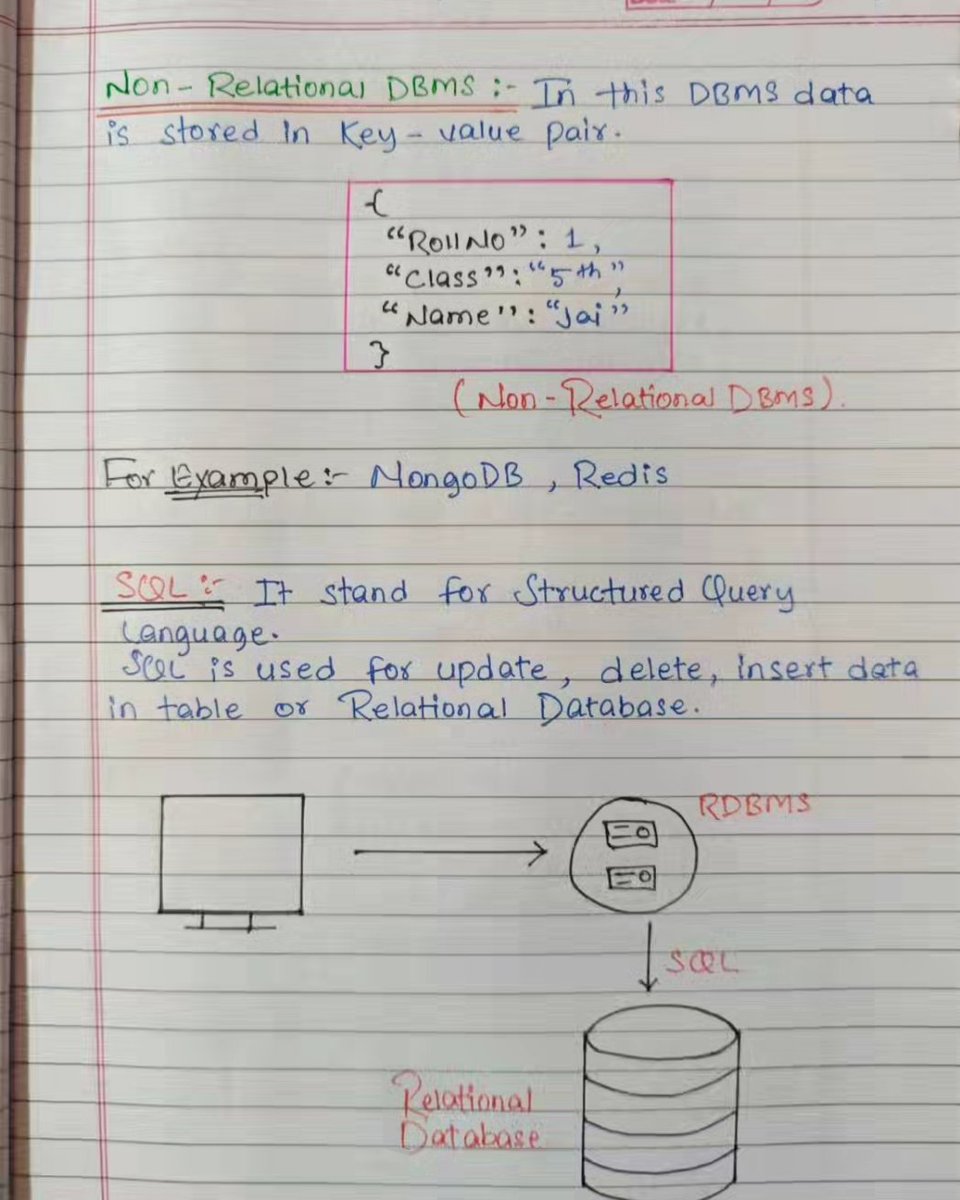 Non-Relational DBMS :- In this DBMS data
is stored in Key-value pair.
{
"RollNo" : 1,
"Class" : "5th",
"Name" : "Jai"
}
(Non-Relational DBMS).
For Example :- MongoDB , Redis
SQL :- It stand for Structured Query
Language.
SQL is used for update, delete, insert data
in table or Relational Database.
RDBMS
SQL
Relational
Database